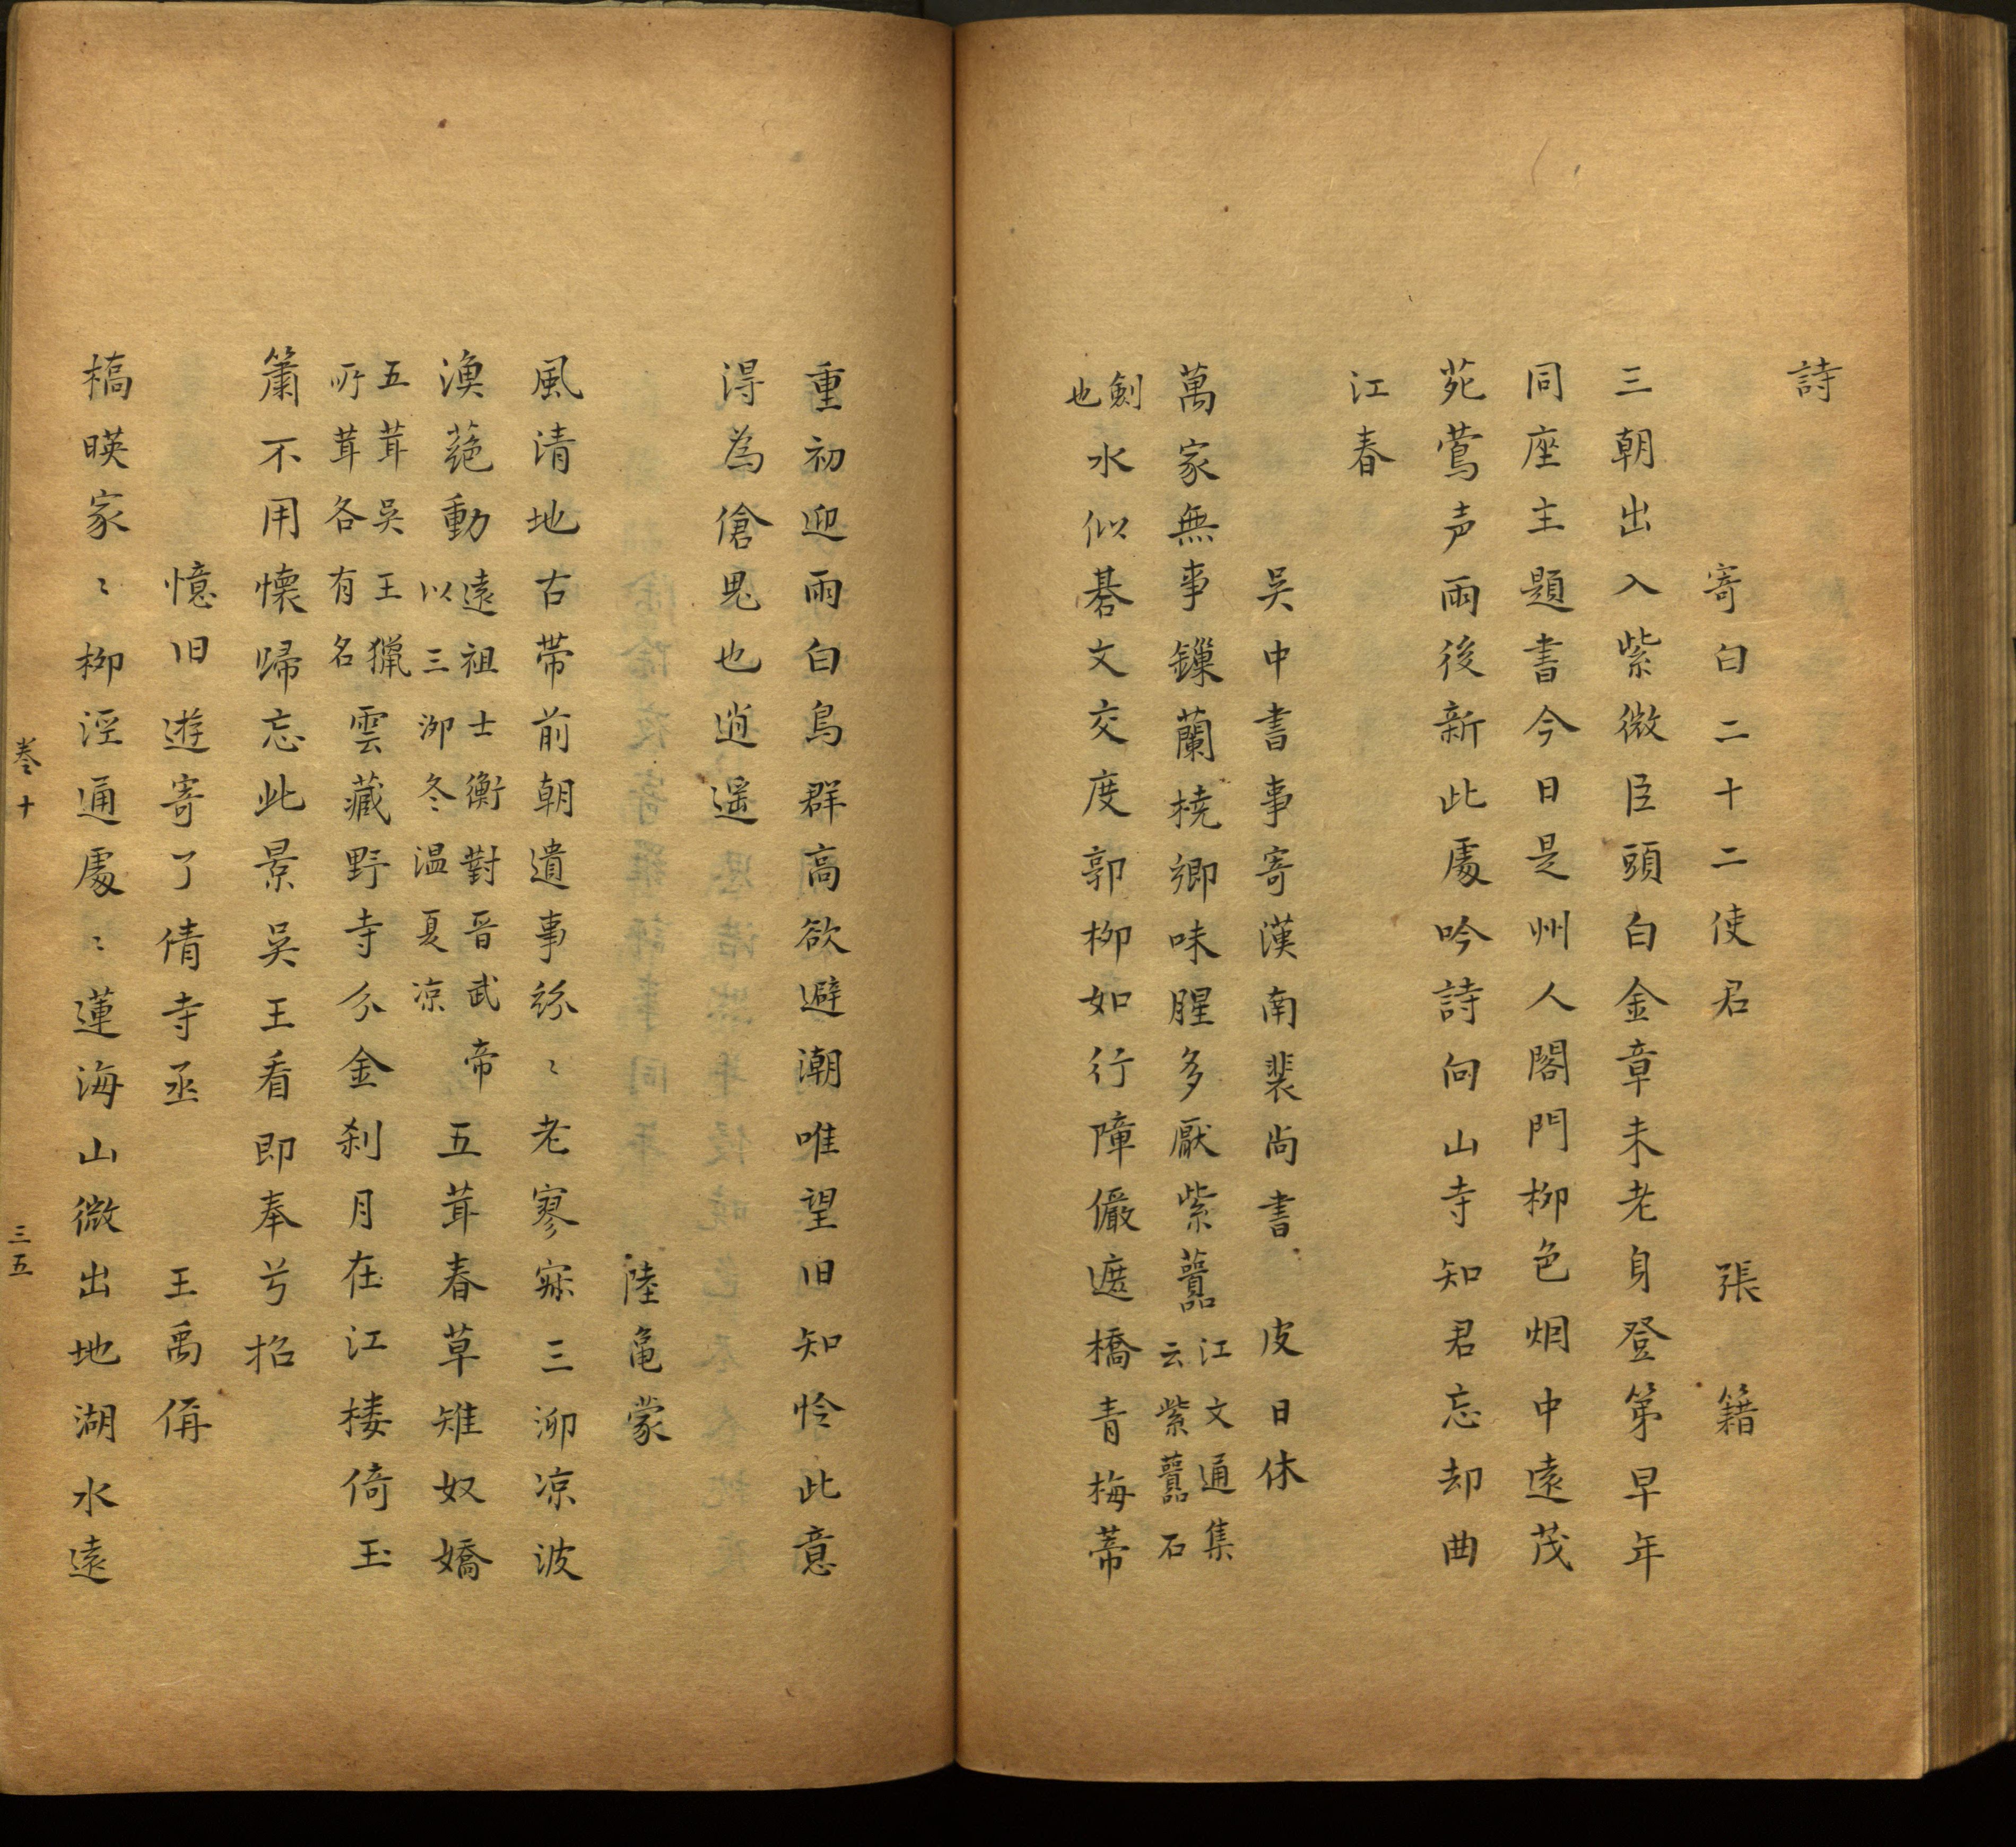 詩
寄白二十二使君　張籍
三朝出入紫微臣頭白金章未老身登第早年
同座主題書今日是州人閶門柳色烟中遠茂
苑鶯声雨後新此處吟詩向山寺知君忘却曲
江春
吳中書事寄漢南裴尚書　皮日休
萬家無事鏁蘭橈鄉味腥多厭紫䖀江文通集云紫䖀石
劍也水似碁文交度郭柳如行障儼遮橋青梅蒂
重初迎雨白鳥群高欲避潮唯望旧知怜此意
得為傖鬼也逍遥
陸亀蒙
風清地古帯前朝遺事紛〻老寥寂三泖凉波
漁蕝動遠祖士衡對晋武帝以三泖冬温夏凉五茸春草雉奴嬌
五茸吳王獵所茸各有名雲藏野寺分金刹月在江楼倚玉
簫不用懷歸忘此景吳王看即奉弓招
憶旧遊寄了倩寺丞　王禹偁
橋暎家〻柳涇通處〻蓮海山微出地湖水遠
卷十　三五